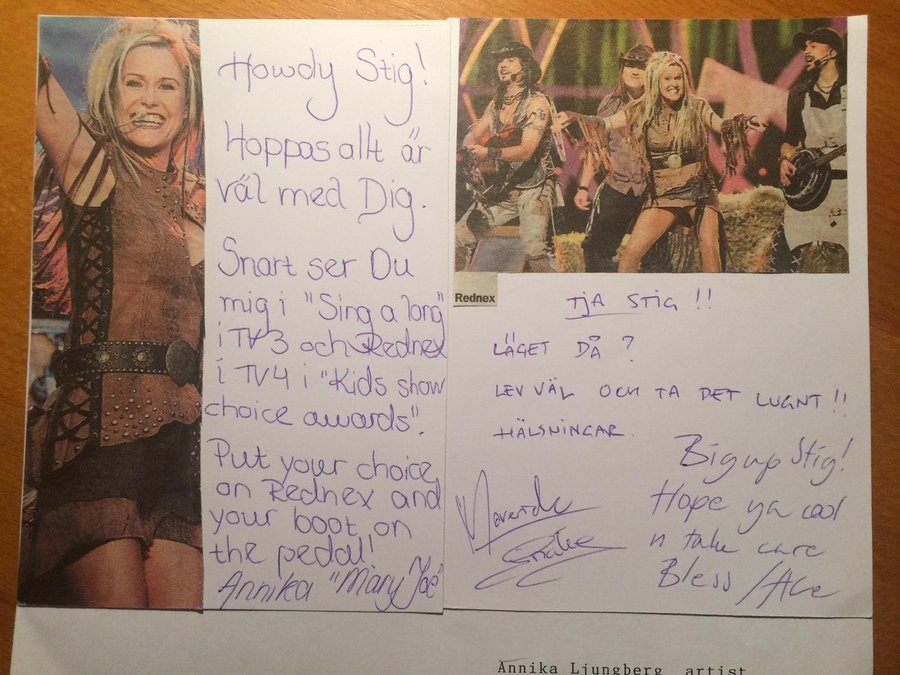 Howdy Stig!
Hoppas allt är
väl med Dig.
Snart ser Du
mig i "Sing a long"
i TV3 och Rednex
i TV4 i "Kids show
choice awards".
Put your choice
on Rednex and
your boot on
the pedal!
Annika "Mary Joe"
Rednex
TJA STIG !!
LÄGET DÅ ?
LEV VÄL OCH TA DET LUGNT !!
HÄLSNINGAR.
Big up Stig!
Hope ya cool
n take care
Bless /Ace
Annika Ljungberg artist